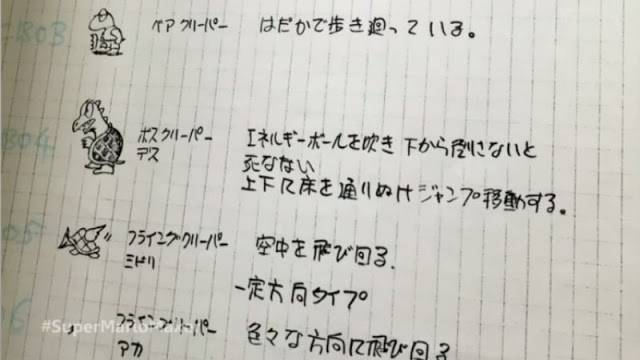 B03
ベア クリーパー
はだかで歩き廻っている。
B04
ボスクリーパー
デス
エネルギーボールを吹き 下から倒さないと
死なない
上下に床を通りぬけジャンプ移動する。
フライングクリーパー
ミドリ
空中を飛び回る.
一定方向タイプ
フライングクリーパー
アカ
色々な方向に飛び回る
#SuperMarioMaker